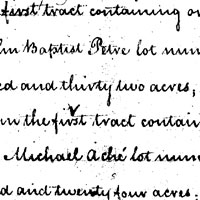 first tract containing
Baptist Petre lot num
ed and thirty two acres,
the first tract contain
Michael Aché lot num
d and twenty four acres: